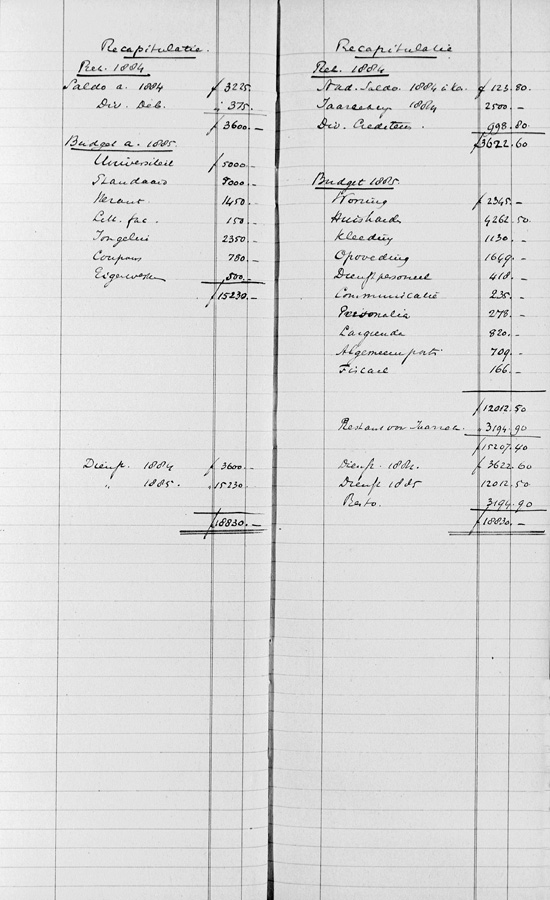 Recapitulatie.
Rek. 1884
Saldo a. 1884 f 3225.
Div. Deb. " 375.-
f 3600.-
Budget a. 1885.
Universiteit f 5000.-
Standaard 5000.-
Heraut 1450.-
Lett. fac. 150.-
2350.-
Coupons 780.-
Eigen werken 500.-
f 15230.-
Dienst. 1884 f 3600.-
" 1885. " 15230.-
f 18830.-
Recapitulatie
Rek. 1884
Nad. Saldo 1884 f 123.80.
1884 2500.-
Div. Crediteuren. 998.80
f 3622.60
Budget 1885.
Woning f 2345.-
Huishoud. 4262.50
Kleeding 1130.-
Opvoeding 1649.-
Dienstpersoneel 418.-
Communicatie 235.-
Personalia 278.-
820.-
709.-
Fiscaal 166.-
f 12012.50
Restant voor 3194.90
f 15207.40
Dienst. 1884. f 3622.60
Dienst 1885 12012.50
3194.90
f 18830.-